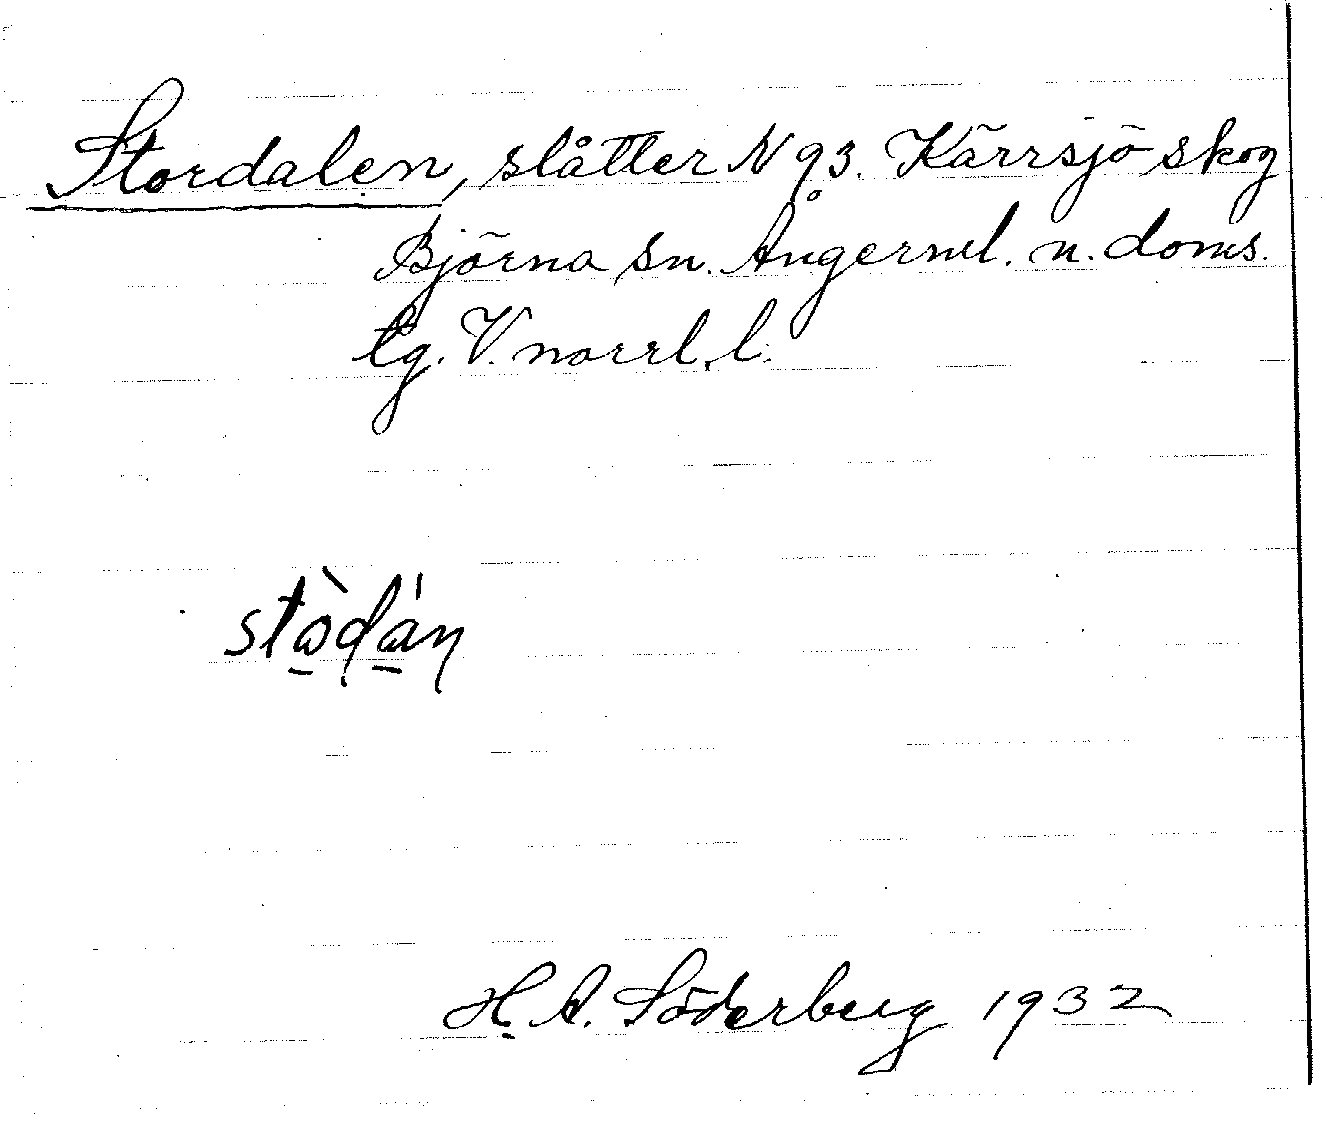 Stordalen, slåtter N 93. Kärrsjö skog
Björna sn. Ångerml. n. doms.
tg. V. norrl. l.
H. A. Söderberg 1932